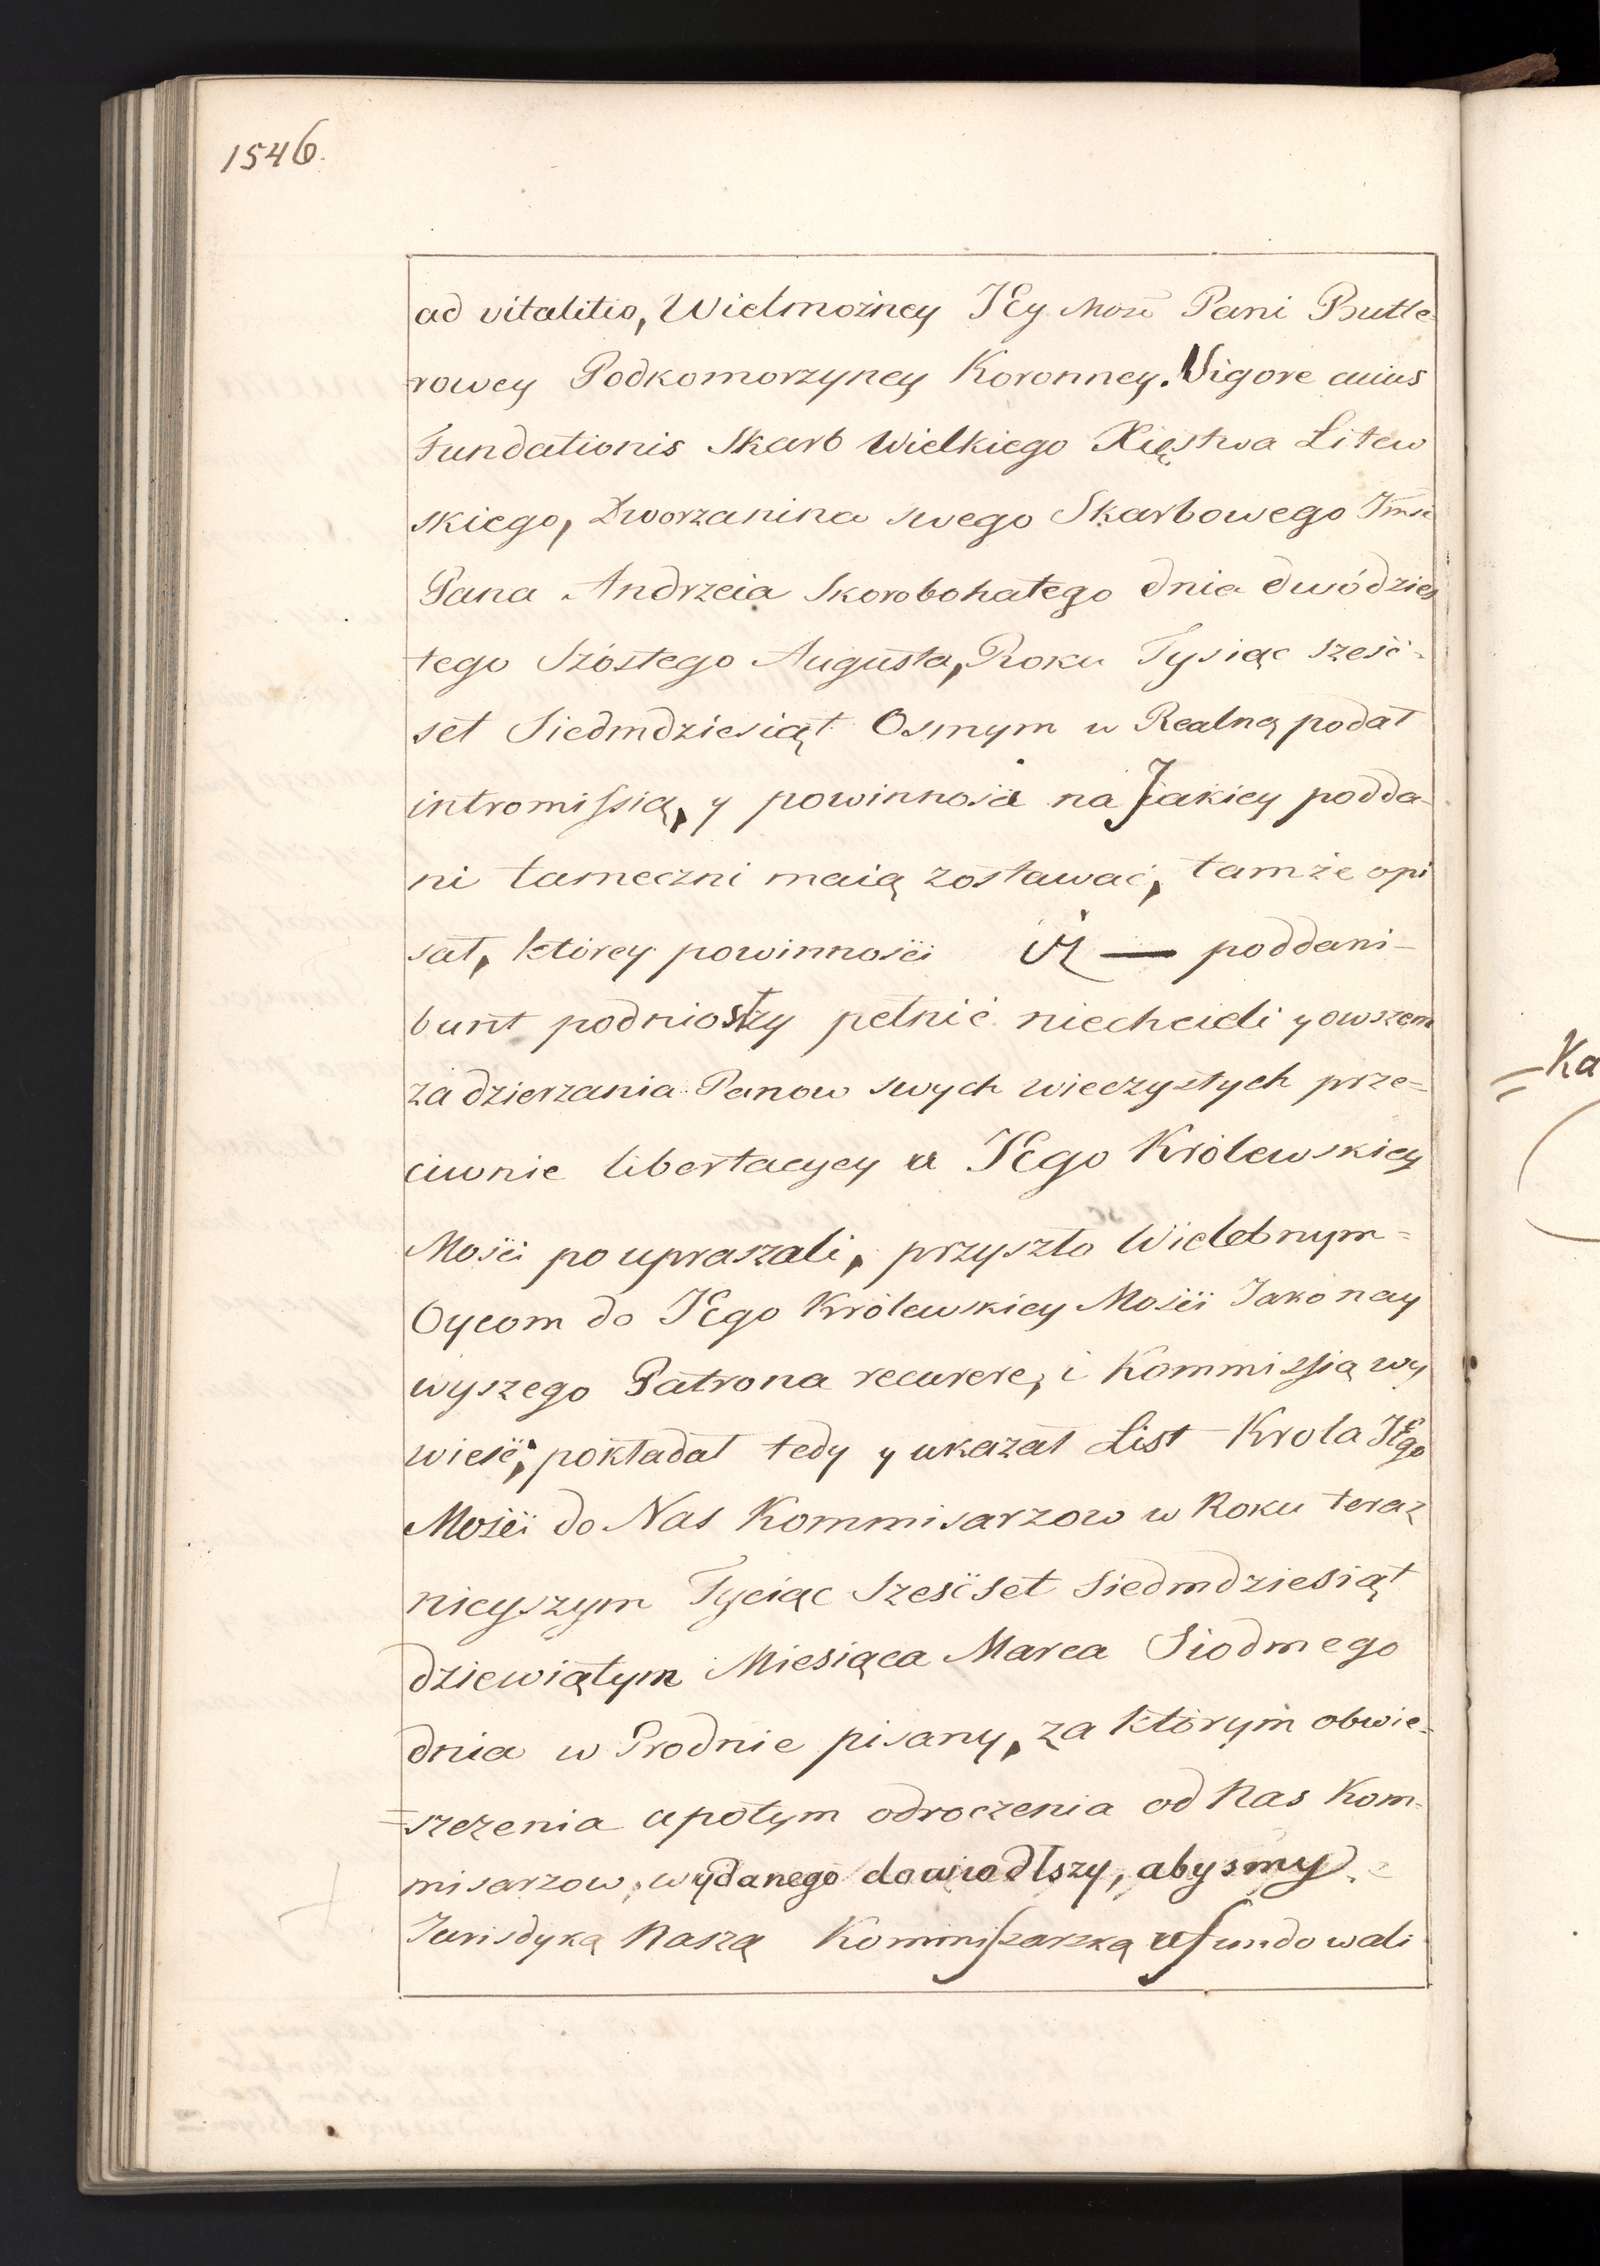 1546.
ad vitalitio, Wielmożney JEy Mośc Pani Butle-
rowey Podkomorzyney Koronney. Vigore cuius
Fundationis Skarb Wielkiego Xięstwa Litew
skiego, Dworzanina swego Skarbowego Jmsc
Pana Andrzeia Skorobohatego dnia dwódzies
tego Szóstego Augusta, Roku Tysiąc sześć-
set Siedmdziesiąt Osmym w Realną podał
intromissią, y powinność na Jakiey podda-
ni tameczni maią zostawać, tamże opi
sał, ktorey powinnosći Iż — poddani-
bunt podniosłzy pełnić niechcieli y owszem
za dzierzania Panow swych wieczystych prze-
ciwnie libertacyey u JEgo Królewskiey
Mosći po upraszali, przyszło Wielebnym-
Oycom do JEgo Królewskiey Mosći Jako nay
wyszego Patrona recurere, i Kommissią wy
wieść, pokładał tedy y ukazał List Krola JEgo
Mosći do Nas Kommisarzow w Roku teraz
nieyszym Tyciąc Szesćset Siedmdziesiąt
dziewiątym Miesiąca Marca Siodmego
dnia w Grodnie pisany, za ktorym obwie-
szczenia a potym odroczenia od Nas Kom-
misarzow, wydanego dowiodłszy, abysmy
Jurisdyką Naszą Kommissarzką ufundowali
Ka